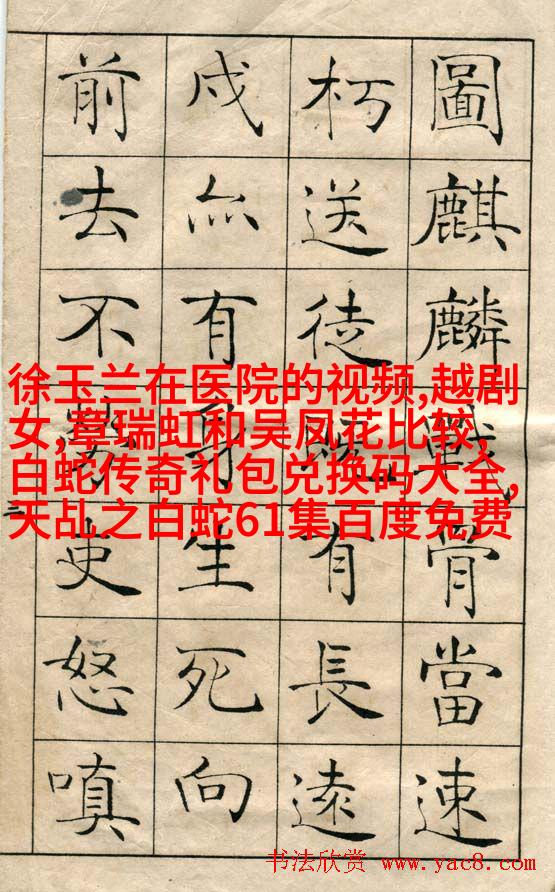 圖麒麟戰骨當速
朽送徒既有長遠
戍亦有身生死向
前去不吏怒嗔
三
徐玉兰在医院的视频,越剧
女,章瑞虹和吴凤花比较,
白蛇传奇礼包兑换码大全,
天乩之白蛇61集百度免费
书法欣赏 www.yac8.com